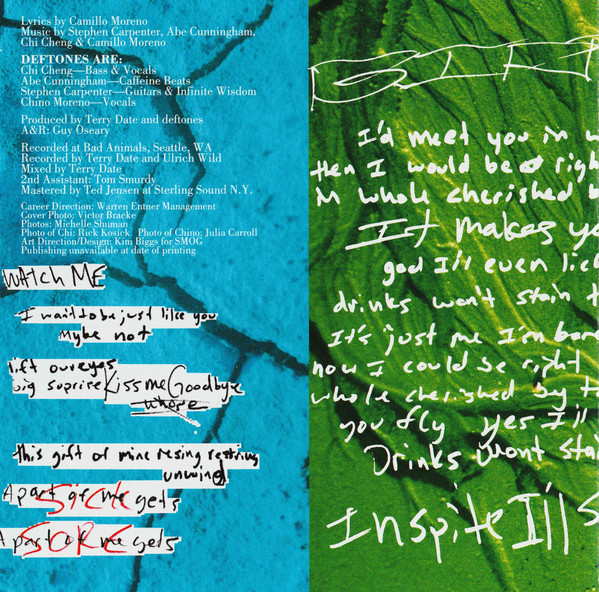 Lyrics by Camillo Moreno
Music by Stephen Carpenter, Abe Cunningham,
Chi Cheng & Camillo Moreno
DEFTONES ARE:
Chi Cheng—Bass & Vocals
Abe Cunningham—Caffeine Beats
Stephen Carpenter—Guitars & Infinite Wisdom
Chino Moreno—Vocals
Produced by Terry Date and deftones
A&R: Guy Oseary
Recorded at Bad Animals, Seattle, WA
Recorded by Terry Date and Ulrich Wild
Mixed by Terry Date
2nd Assistant: Tom Smurdy
Mastered by Ted Jensen at Sterling Sound N.Y.
Career Direction: Warren Entner Management
Cover Photo: Victor Bracke
Photos: Michelle Shuman
Photo of Chi: Rick Kosick Photo of Chino: Julia Carroll
Art Direction/Design: Kim Biggs for SMOG
Publishing unavailable at date of printing
WAtCh ME
I want to be just like you
Mybe not
lift our eyes
big suprire Kiss me Goodbye
whore
this gift of mine resing restring
unwind
A part of me gets
SICK
A part of me gets
SORE
I'd meet you in
then I would be right
whole cherished
It makes
god I'll even lick
drinks won't stain
It's just me I'm
now I could be right
whole cherished by
you fly yes I'll
Drinks wont stai
Inspite I'll